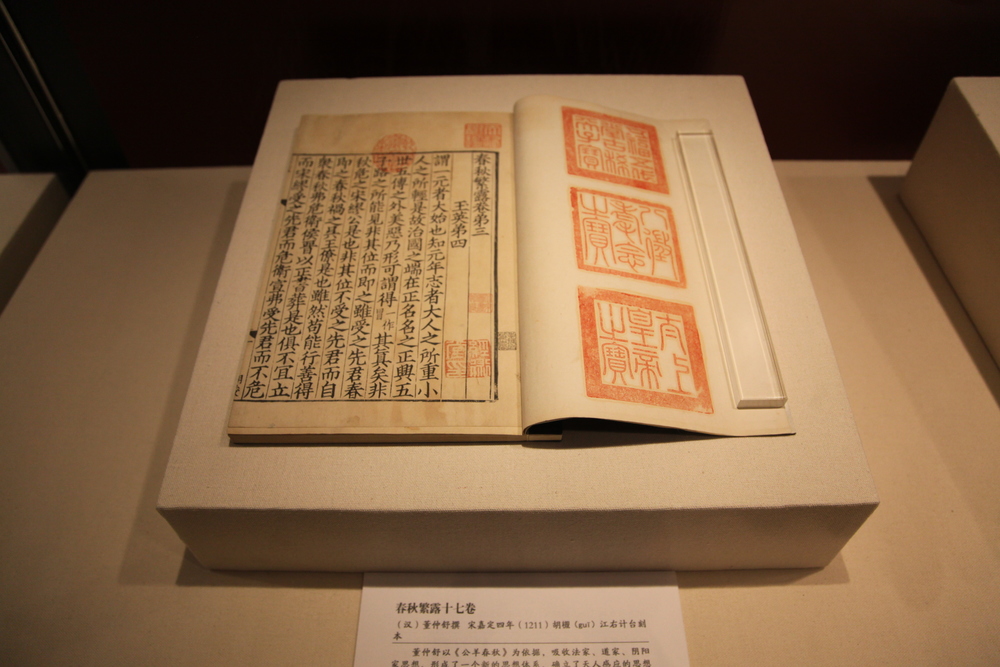 五福五代堂古稀天子寶
八徵耄念之寶
太上皇帝之寶
春秋繁露卷第三
王英第四
謂一元者大始也知元年志者大人之所重小
人之所輕是故治國之端在正名名之正興五
世五傳之外美惡乃形可謂得一作其真矣非
子路之所能見非其位而即之雖受之先君春
秋危之宋繆公是也非其位不受之先君而自
即之春秋之吳王僚是也雖然苟能行善得
衆春秋弗危衛侯晉以正書葬是也俱不宜立
而宋繆受之先君而危衛宣弗受先君而不危
春秋繁露十七卷
（汉）董仲舒撰 宋嘉定四年（1211）胡槻（guī）江右计台刻
本
董仲舒以《公羊春秋》为依据，吸收法家、道家、阴阳
家思想，形成了一个新的思想体系，确立了天人感应的思想